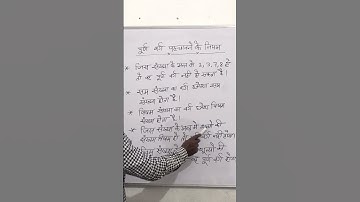 पूर्ण वर्ग पहचानने के नियम
* जिस संख्या के अन्त में 2, 3, 7, 8 हो
तो वह पूर्ण वर्ग नहीं हो सकता है।
* सम संख्या का वर्ग हमेशा सम
संख्या होता है।
* विषम संख्या का वर्ग हमेशा विषम
संख्या होता है।
* जिस संख्या के अन्त में शून्यों की
संख्या विषम हो तो वर्ग नहीं होगा
जिस संख्या के शून्यों की
पूर्ण वर्ग होगा